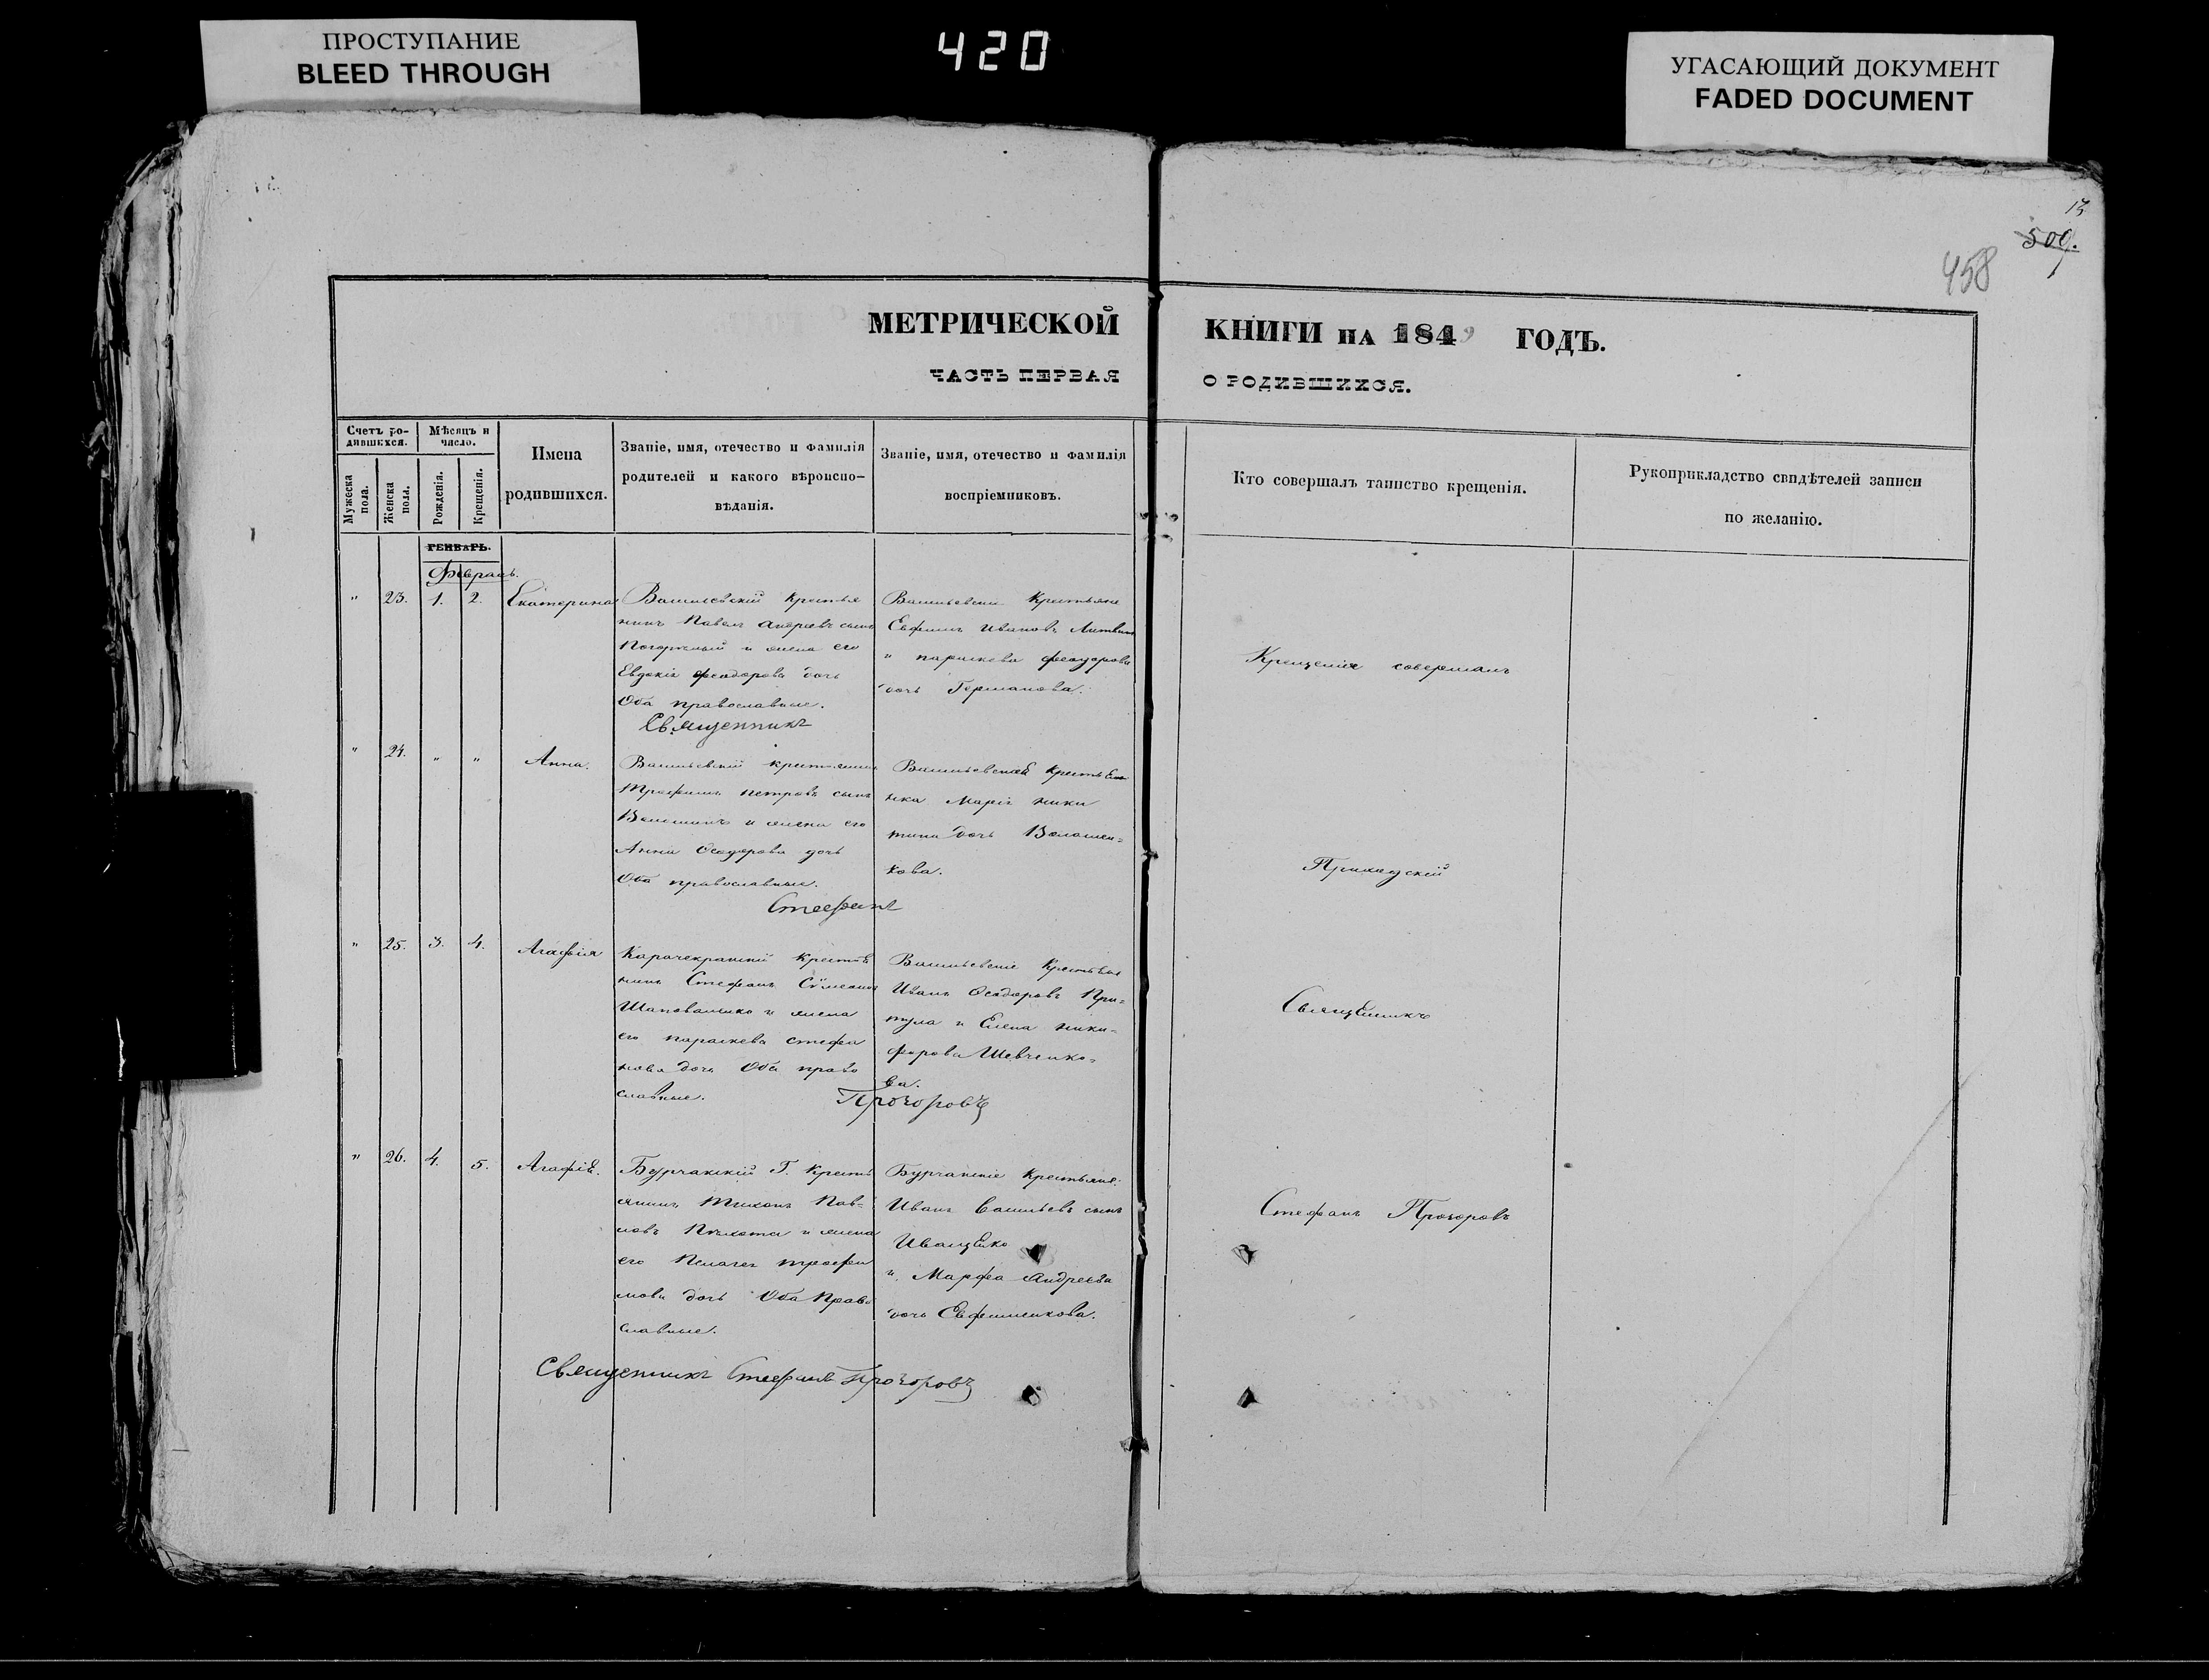 ПРОСТУПАНИЕ
BLEED THROUGH
420
УГАСАЮЩИЙ ДОКУМЕНТ
FADED DOCUMENT
13
509.
458
МЕТРИЧЕСКОЙ КНИГИ НА 1849 ГОДЪ.
ЧАСТЬ ПЕРВАЯ О РОДИВШИХСЯ.
Счетъ ро-
дившихся.
Мѣсяцъ и
число.
Мужеска
пола.
Женска
пола.
Рожденія.
Крещенія.
Имена
родившихся.
Званіе, имя, отечество и фамилія
родителей и какого вѣроиспо-
вѣданія.
Званіе, имя, отечество и фамилія
воспріемниковъ.
Кто совершалъ таинство крещенія.
Рукоприкладство свидѣтелей записи
по желанію.
ГЕНВАРЬ.
Февраль.
" 23. 1. 2. Екатерина
Васильевскій крестья
нинъ Павелъ Андреевъ сынъ
и жена его
Евдокія Феодорова дочь
Оба православные.
Васильевски Крестьяне
Евфимъ Ивановъ Литвин
и параскева феодорова
дочь Германова.
Священникъ
" 24. " " Анна.
Васильевскій крестьянинъ
Трофимъ петровъ сынъ
Волошинъ и жена его
Анна Феодорова дочь
Оба православные.
Васильевская крестьян
нка Марія ники
тина дочь Волошен=
кова.
Стефанъ
" 25. 3. 4. Агафія
Карачекракскій крестья
нинъ Стефанъ Сѵмеонов
Шаповаленко и жена
его параскева стефа
нова дочь Оба право
славные.
Васильевскіе Крестьяне
Иванъ Феодоровъ При=
тула и Елена ники=
форова Шевченко=
ва.
Прохоровъ
" 26. 4. 5. Агафія.
Бурчакскій Г. Кресть
янинъ Тихонъ Пав=
ловъ и жена
его Пелагея трофи
мова дочь Оба Право
славные.
Бурчакскіе Крестьяне.
Иванъ Васильевъ сынъ
Иващенко
и Марфа Андреева
дочь Евфименкова.
Священникъ Стефанъ Прохоровъ
Крещеніе совершалъ
Приходскій
Священникъ
Стефанъ Прохоровъ